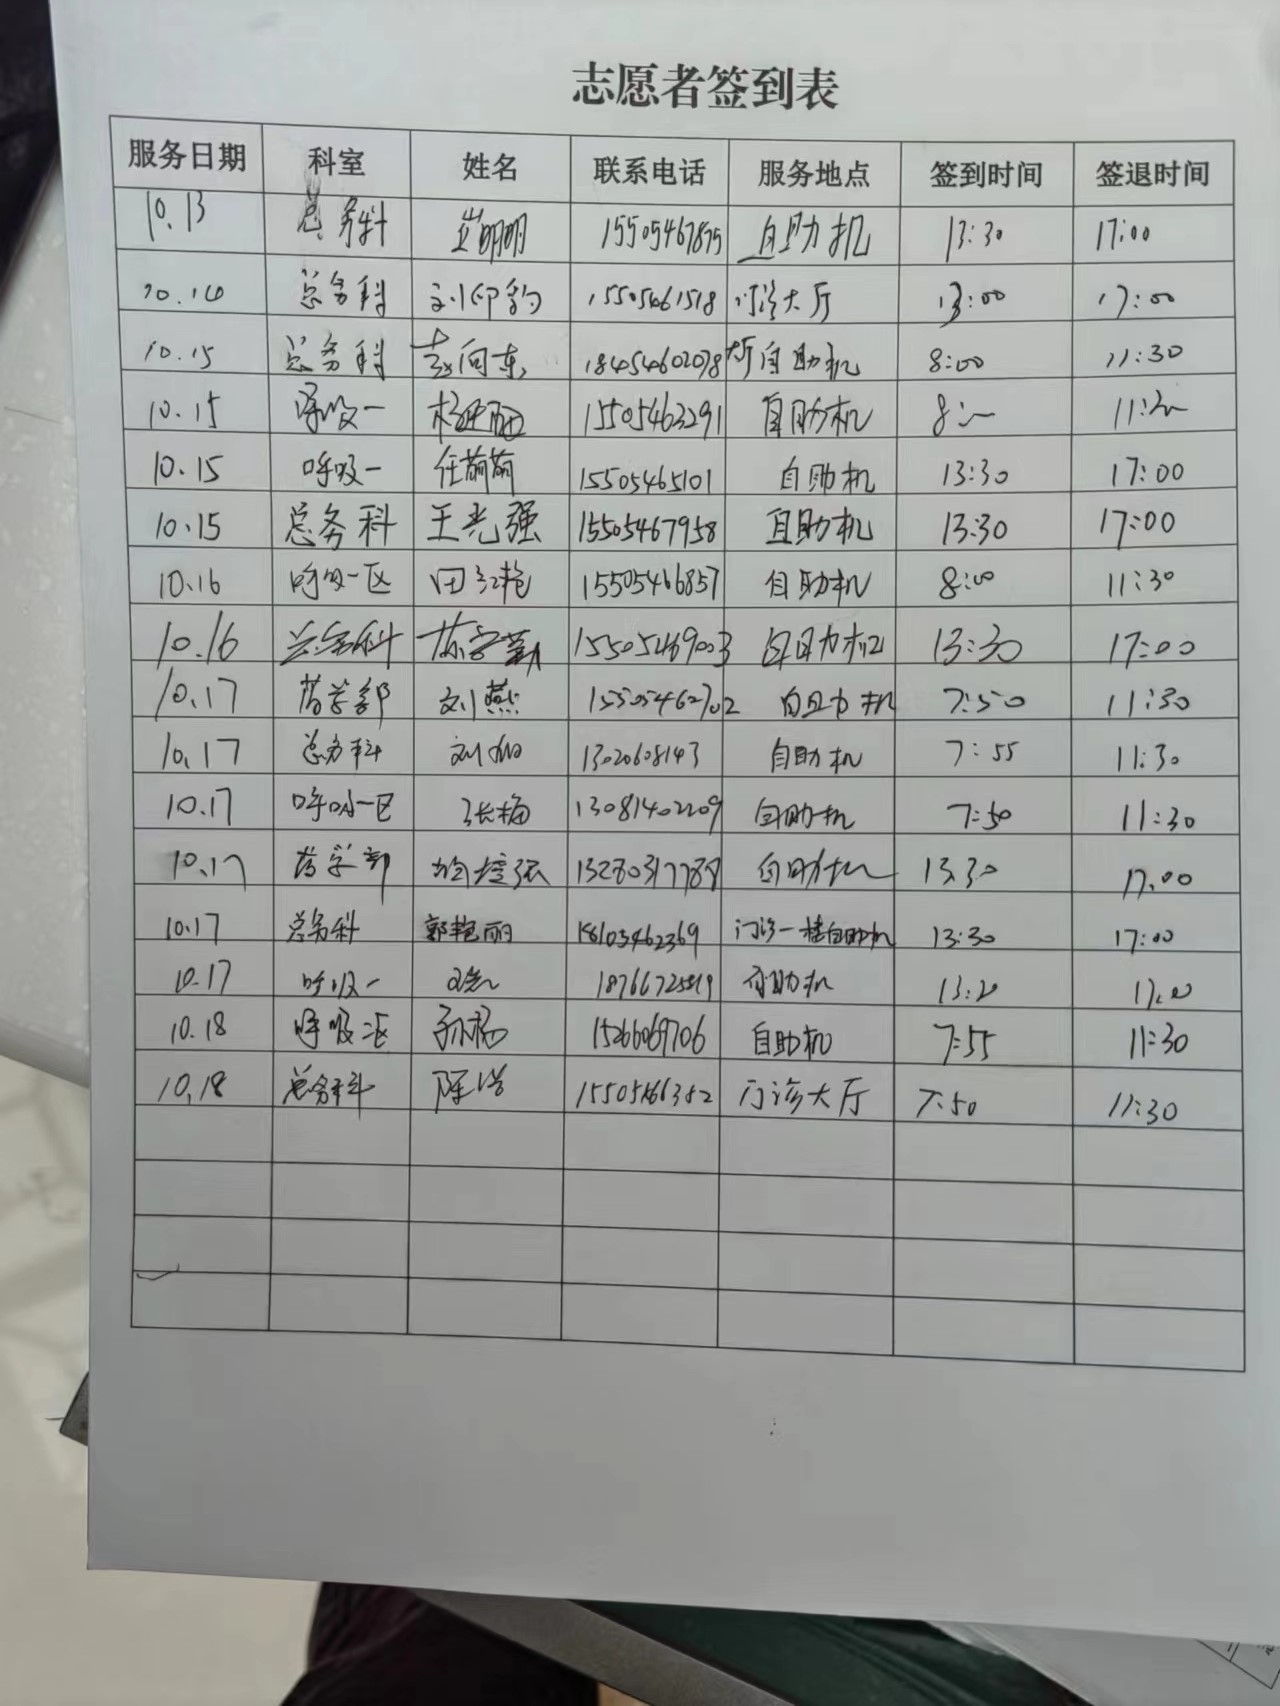 志愿者签到表
服务日期 科室 姓名 联系电话 服务地点 签到时间 签退时间
10.13 总务科 崔明明 15505467875 自助机 13:30 17:00
10.14 总务科 15505461518 门诊大厅 13:00 17:00
10.15 总务科 向东 18454602078 大厅自助机 8:00 11:30
10.15 呼吸一 15505463291 自助机 11:30
10.15 呼吸一 任萌萌 15505465101 自助机 13:30 17:00
10.15 总务科 王光强 15505467958 自助机 13:30 17:00
10.16 呼吸一区 田红艳 15505466857 自助机 8:00 11:30
10.16 总务科 15505469003 自助机 13:30 17:00
10.17 药学部 刘燕 15505462702 自助机 7:50 11:30
10.17 总务科 1302608143 自助机 7:55 11:30
10.17 呼吸一区 张梅 13081402209 自助机 7:50 11:30
10.17 药学部 自助机 13:30 17:00
10.17 总务科 郭艳丽 门诊一楼自助机 13:30 17:00
10.17 呼吸一 自助机 13:20 17:00
10.18 呼吸 孙杨 15266069706 自助机 7:55 11:30
10.18 总务科 15505466352 门诊大厅 7:50 11:30